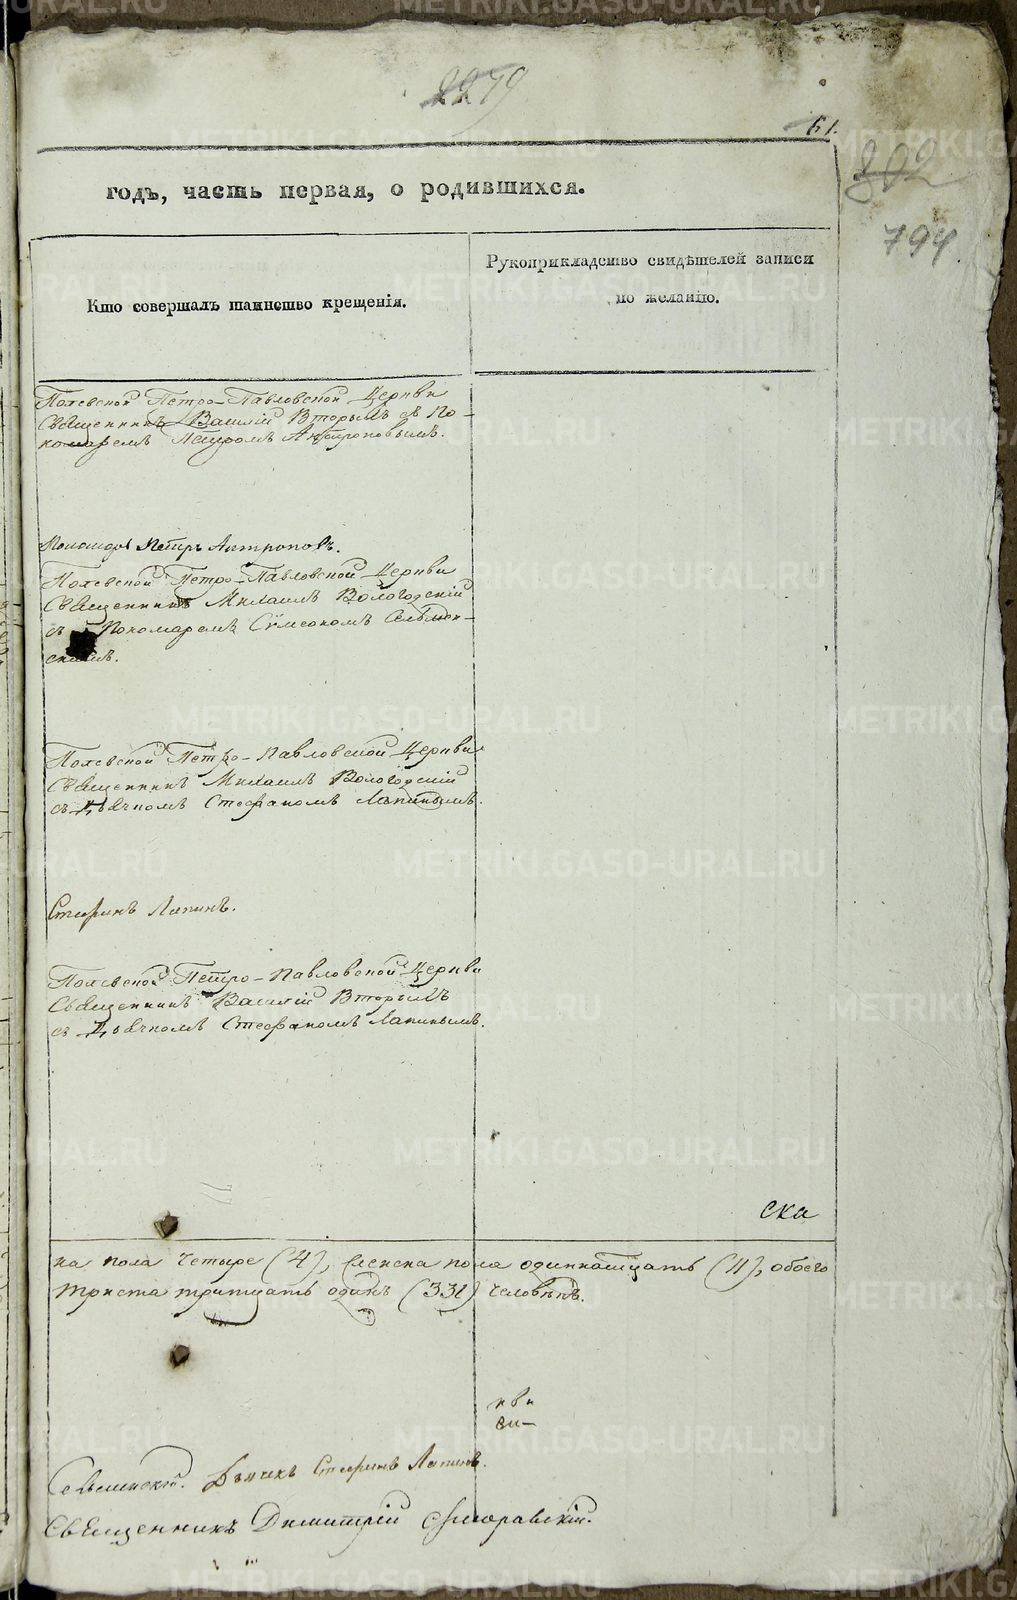 2279
61.
802
794
годъ, часть первая, о родившихся.
Кто совершалъ таинство крещенія.
Рукоприкладство свидѣтелей записи
по желанію.
Полевской Петро-Павловской Церкви
Священникъ Василій Вторыхъ съ По-
номаремъ Петромъ Антроповымъ.
Пономарь Петръ Антроповъ.
Полевской Петро-Павловской Церкви
Священникъ Михаилъ Вологодскій
съ Пономаремъ Сѵмеономъ
скимъ.
Полевской Петро-Павловской Церкви
Священникъ Михаилъ Вологодскій
съ Дьячкомъ Стефаномъ Лапинымъ.
Стефанъ Лапинъ.
Полевской Петро-Павловской Церкви
Священникъ Василій Вторыхъ
съ Дьячкомъ Стефаномъ Лапинымъ.
ска
на пола четыре (4), женска пола одиннатцать (11), обоего
триста тритцать одинъ (331) человѣкъ.
Дьячекъ Стефанъ Лапинъ.
Священникъ Димитрій
METRIKI.GASO-URAL.RU